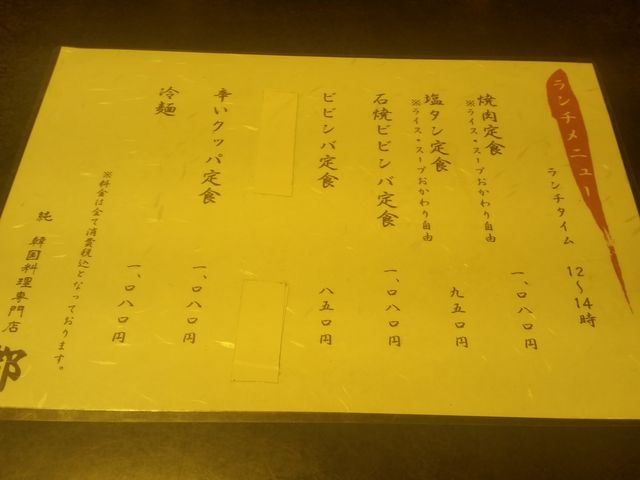 ランチメニュー
ランチタイム 12～14時
焼肉定食 一、〇八〇円
※ライス・スープおかわり自由
塩タン定食 九五〇円
※ライス・スープおかわり自由
石焼ビビンバ定食 一、〇八〇円
ビビンバ定食 八五〇円
辛いクッパ定食 一、〇八〇円
冷麺 一、〇八〇円
※料金は全て消費税込となっております。
純 韓国料理専門店